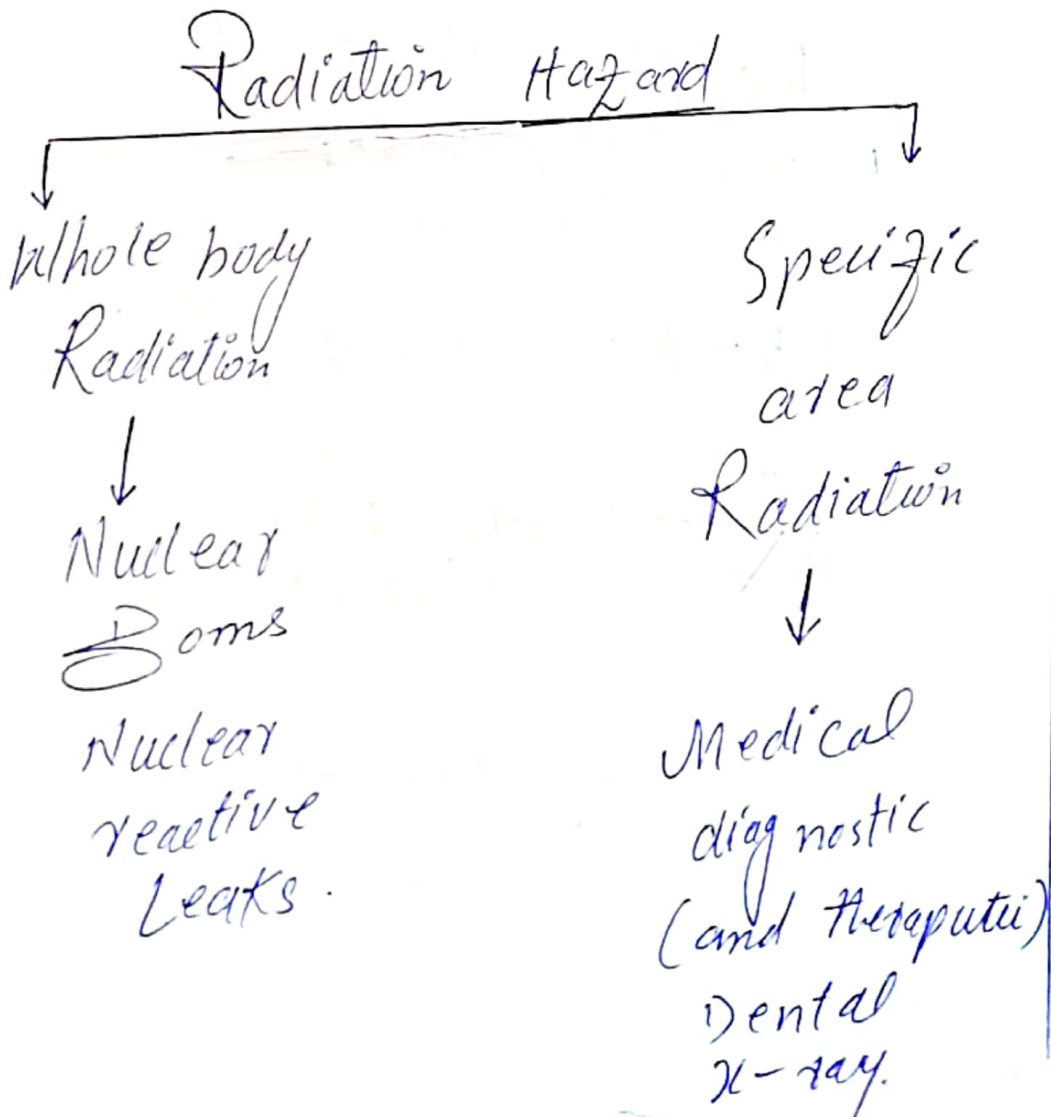 Radiation Hazard
Whole body
Radiation
Nuclear
Boms
Nuclear
reactive
Leaks.
Specific
area
Radiation
Medical
diagnostic
(and theraputic)
Dental
x-ray.